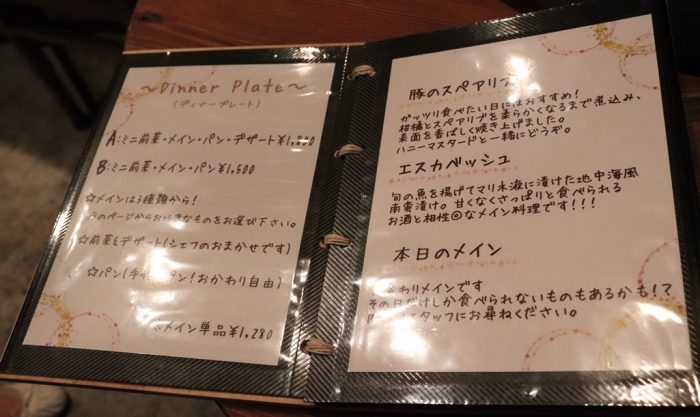 ～Dinner Plate～
(ディナープレート)
A:ミニ前菜・メイン・パン・デザート¥1,
B:ミニ前菜・メイン・パン¥1,500
☆メインは3種類から!
のページからお好きなものをお選び下さい。
☆前菜&デザート(シェフのおまかせです)
☆パン( パン!おかわり自由)
メイン単品¥1,280
豚のスペアリブ
ガッツリ食べたい日にはおすすめ!
柑橘とスペアリブを柔らかくなるまで煮込み、
表面を香ばしく焼き上げました。
ハニーマスタードと一緒にどうぞ。
エスカベッシュ
旬の魚を揚げてマリネ液に漬けた地中海風
南蛮漬け。甘くなくさっぱりと食べられる
お酒と相性◎なメイン料理です!!!
本日のメイン
わりメインです
その日だけしか食べられないものもあるかも!?
スタッフにお尋ねください。